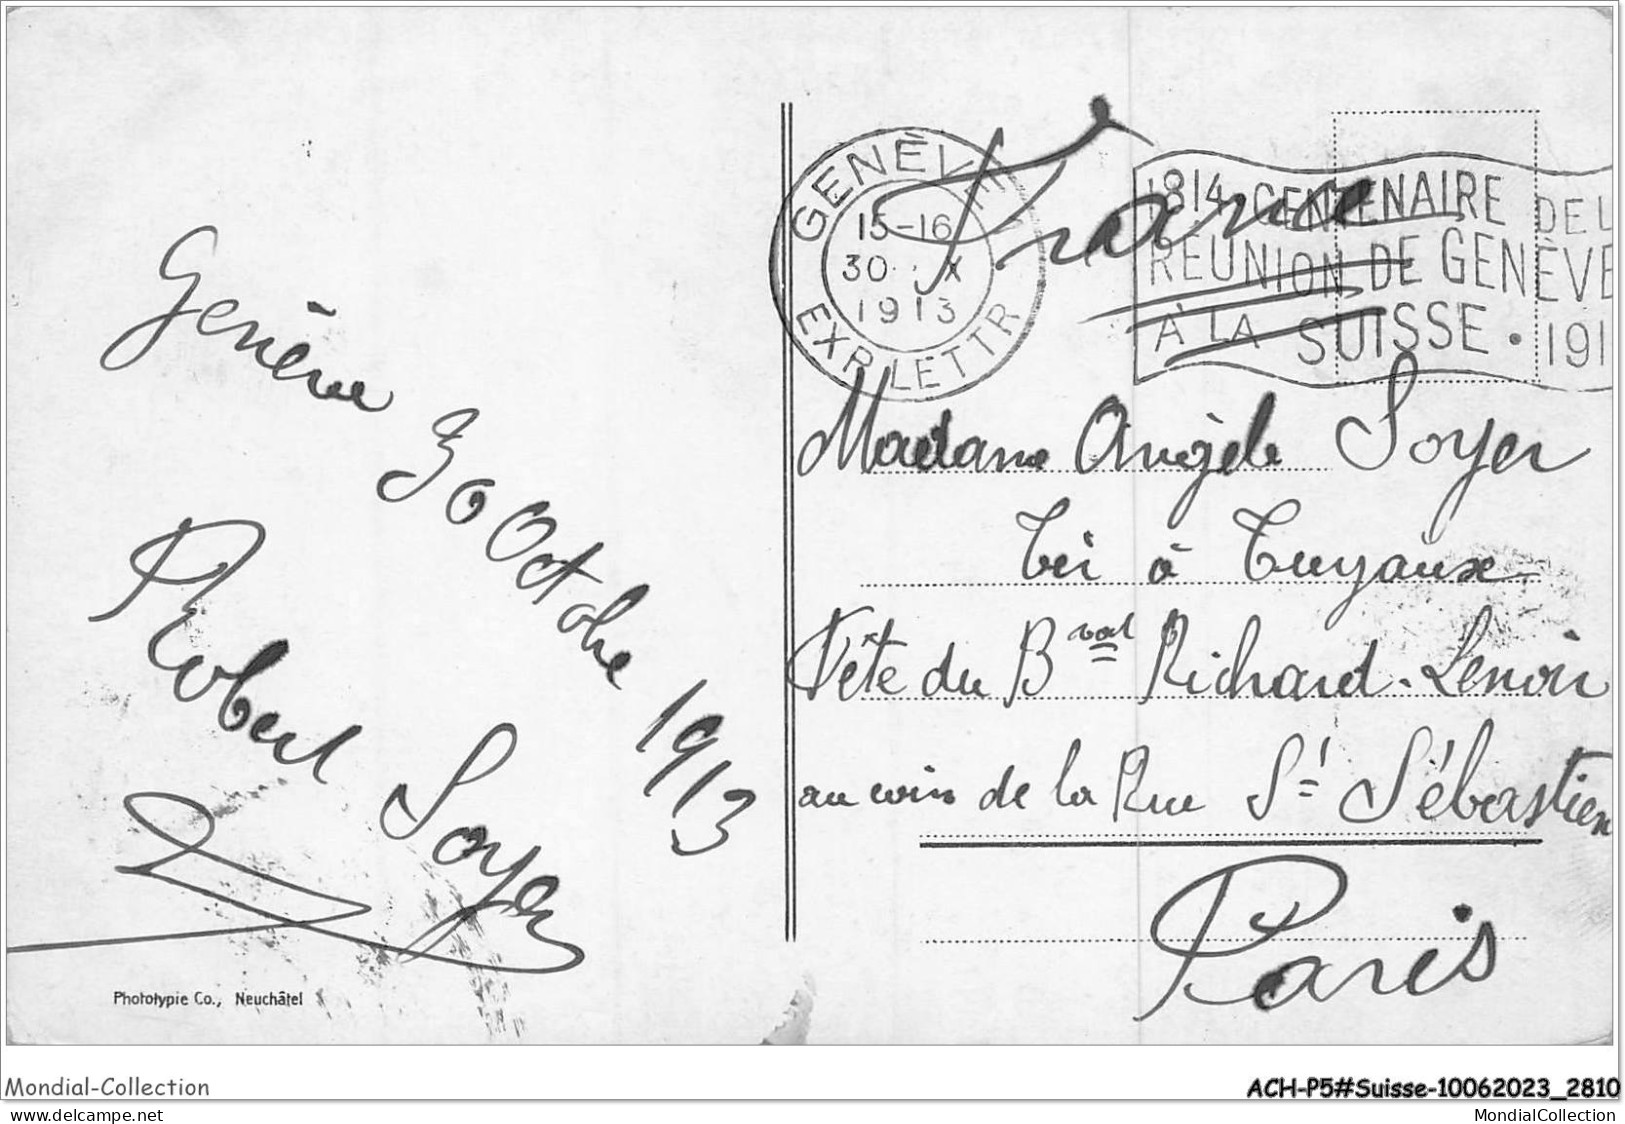 Genève 30 Octobre 1913
Robert Soyer
Phototypie Co., Neuchâtel
GENÈVE
15-16
30. X
1913
EXP. LETTR
1814 CENTENAIRE DE L
RÉUNION DE GENÈVE
À LA SUISSE • 191
France
Madame Angèle Soyer
Tir à Tuyaux
Fête du Bvard Richard-Lenoir
au coin de la Rue St Sébastien
Paris
Mondial-Collection
ACH-P5#Suisse-10062023_2810
www.delcampe.net
MondialCollection